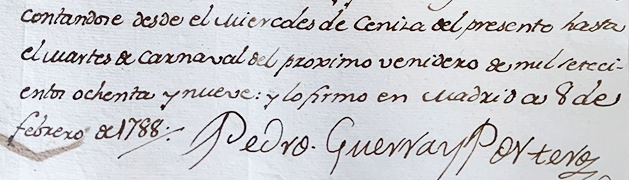 contandose desde el Miercoles de Ceniza del presente hasta
el Martes de Carnaval del proximo venidero de mil seteci-
entos ochenta y nueve: y lo firmo en Madrid a 8 de
febrero de 1788.
Pedro Guerra y Portero